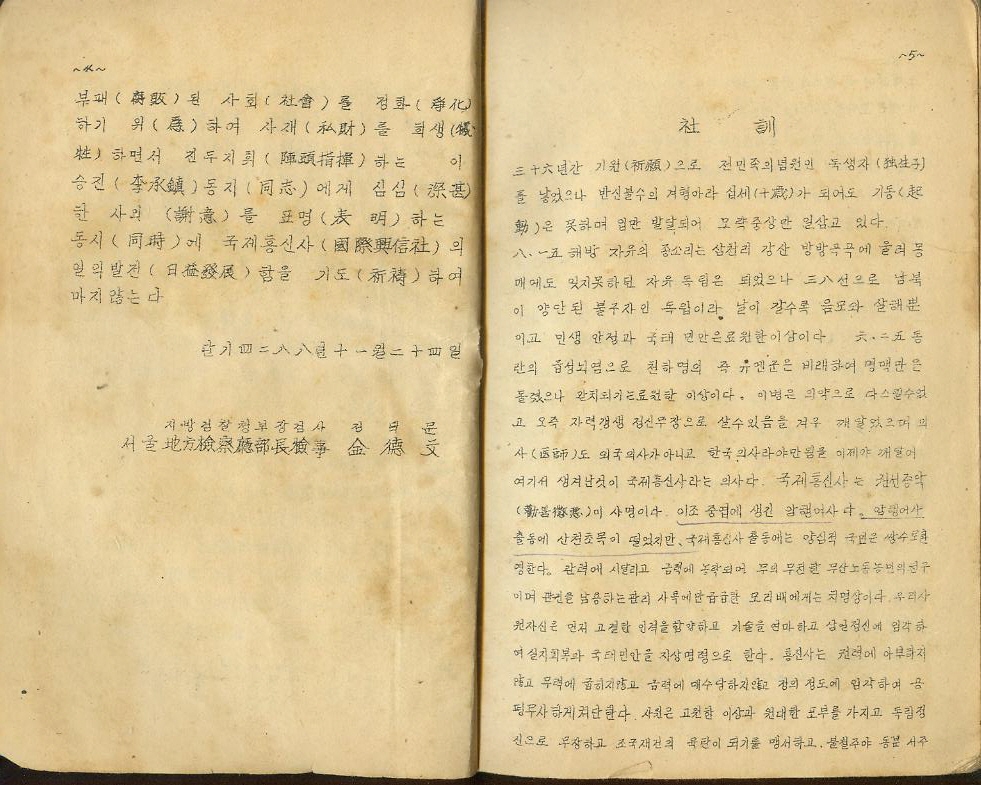 ~4~
부패(腐敗)된 사회(社會)를 정화(淨化)
하기 위(爲)하여 사재(私財)를 희생(犧
牲)하면서 진두지휘(陣頭指揮)하는 이
승진(李承鎭)동지(同志)에게 심심(深甚)
한 사의(謝意)를 표명(表明)하는
동시(同時)에 국제흥신사(國際興信社)의
일익발전(日益發展)함을 기도(祈禱)하여
마지않는다
단기四二八八년十一월二十四일
지방검찰청부장검사 김덕문
서울地方檢察廳部長檢事 金德文
~5~
社訓
三十六년간 기원(祈願)으로 전민족의념원인 독생자(独生子)
를 낳었으나 반신불수의 겨형아라 십세(十歲)가 되어도 기동(起
動)은 못하며 입만 발달되어 모략중상만 일삼고 있다.
八.一五 해방 자유의 종소리는 삼천리 강산 방방곡곡에 울려 몽
매에도 잊지못하던 자유 독립은 되었으나 三八선으로 남북
이 양단된 불구자인 독립이라 날이 갈수록 음모와 살해뿐
이고 민생 안정과 국태 민안은료원한이상이다 六.二五동
란의 급성뇌염으로 천하명의 즉 유엔군은 비래하여 명맥만은
돌렸으나 완치되기는료원한 이상이다. 이병은 의약으로 다스릴수없
고 오즉 자력갱생 정신무장으로 살수있음을 겨우 깨달었으며 의
사(医師)도 외국의사가아니고 한국의사라야만됨을 이제야 깨달어
여기서 생겨난것이 국제흥신사라는 의사다. 국제흥신사는 권선증악
(勸善懲惡)이 사명이다. 이조 중엽에 생긴 암행어사다. 암행어사
출동에 산천초목이 떨었지만, 국제흥신사 출동에는 양심적 국민은 쌍수로환
영한다. 관력에 시달리고 금력에 농락되어 무의 무전한 무산노동농민의친구
이며 관권을 남용하는관리 사욕에만급급한 모리배에게는 치명상이다. 우리사
원자신은 먼저 고결한 인격을함양하고 기술을연마하고 삼권정신에 입각하
여 실지회복과 국태민안을 지상명령으로 한다. 흥신사는 권력에 아부하지
않고 무력에 굴히지않고 금력에 매수당하지않고 정의 정도에 입각하여 공
평무사하게처단한다. 사원은 고원한 이상과 원대한 포부를 가지고 독립정
신으로 무장하고 조국재건의 육탄이 되기를 맹서하고. 불철주야 동분서주